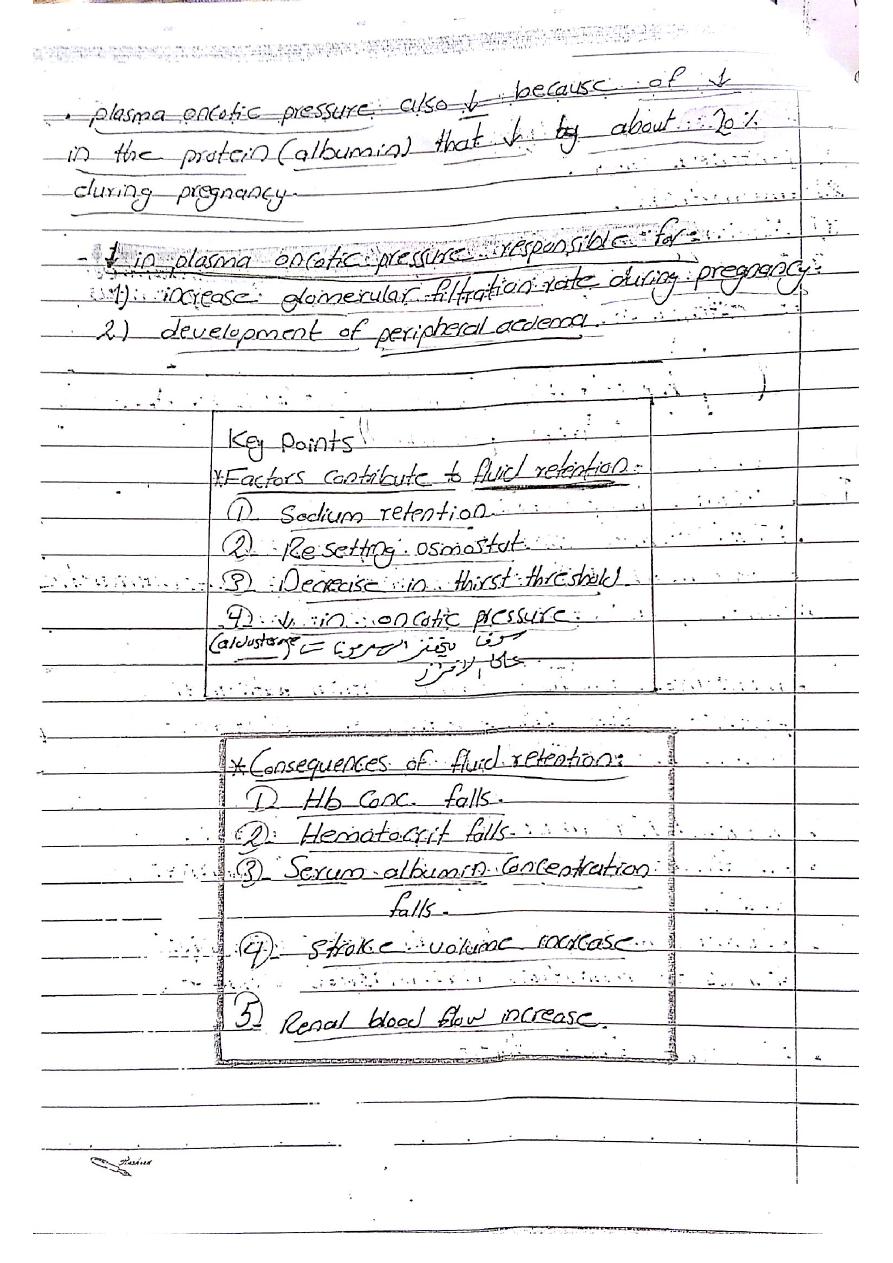 . plasma oncotic pressure also ↓ because of ↓
in the protein (albumin) that ↓ by about 20%
during pregnancy.
- ↓ in plasma oncotic pressure responsible for:
1) increase glomerular filtration rate during pregnancy.
2) development of peripheral aedema.
Key Points
*Factors contribute to fluid retention:
① Sodium retention.
② Resetting osmostat.
③ Decrease in thirst threshold
4) ↓ in oncotic pressure.
(aldosterone
*Consequences of fluid retention:
① Hb Conc. falls.
② Hematocrit falls.
③ Serum albumin Concentration
falls.
④ stroke volume increase.
5) Renal blood flow increase.